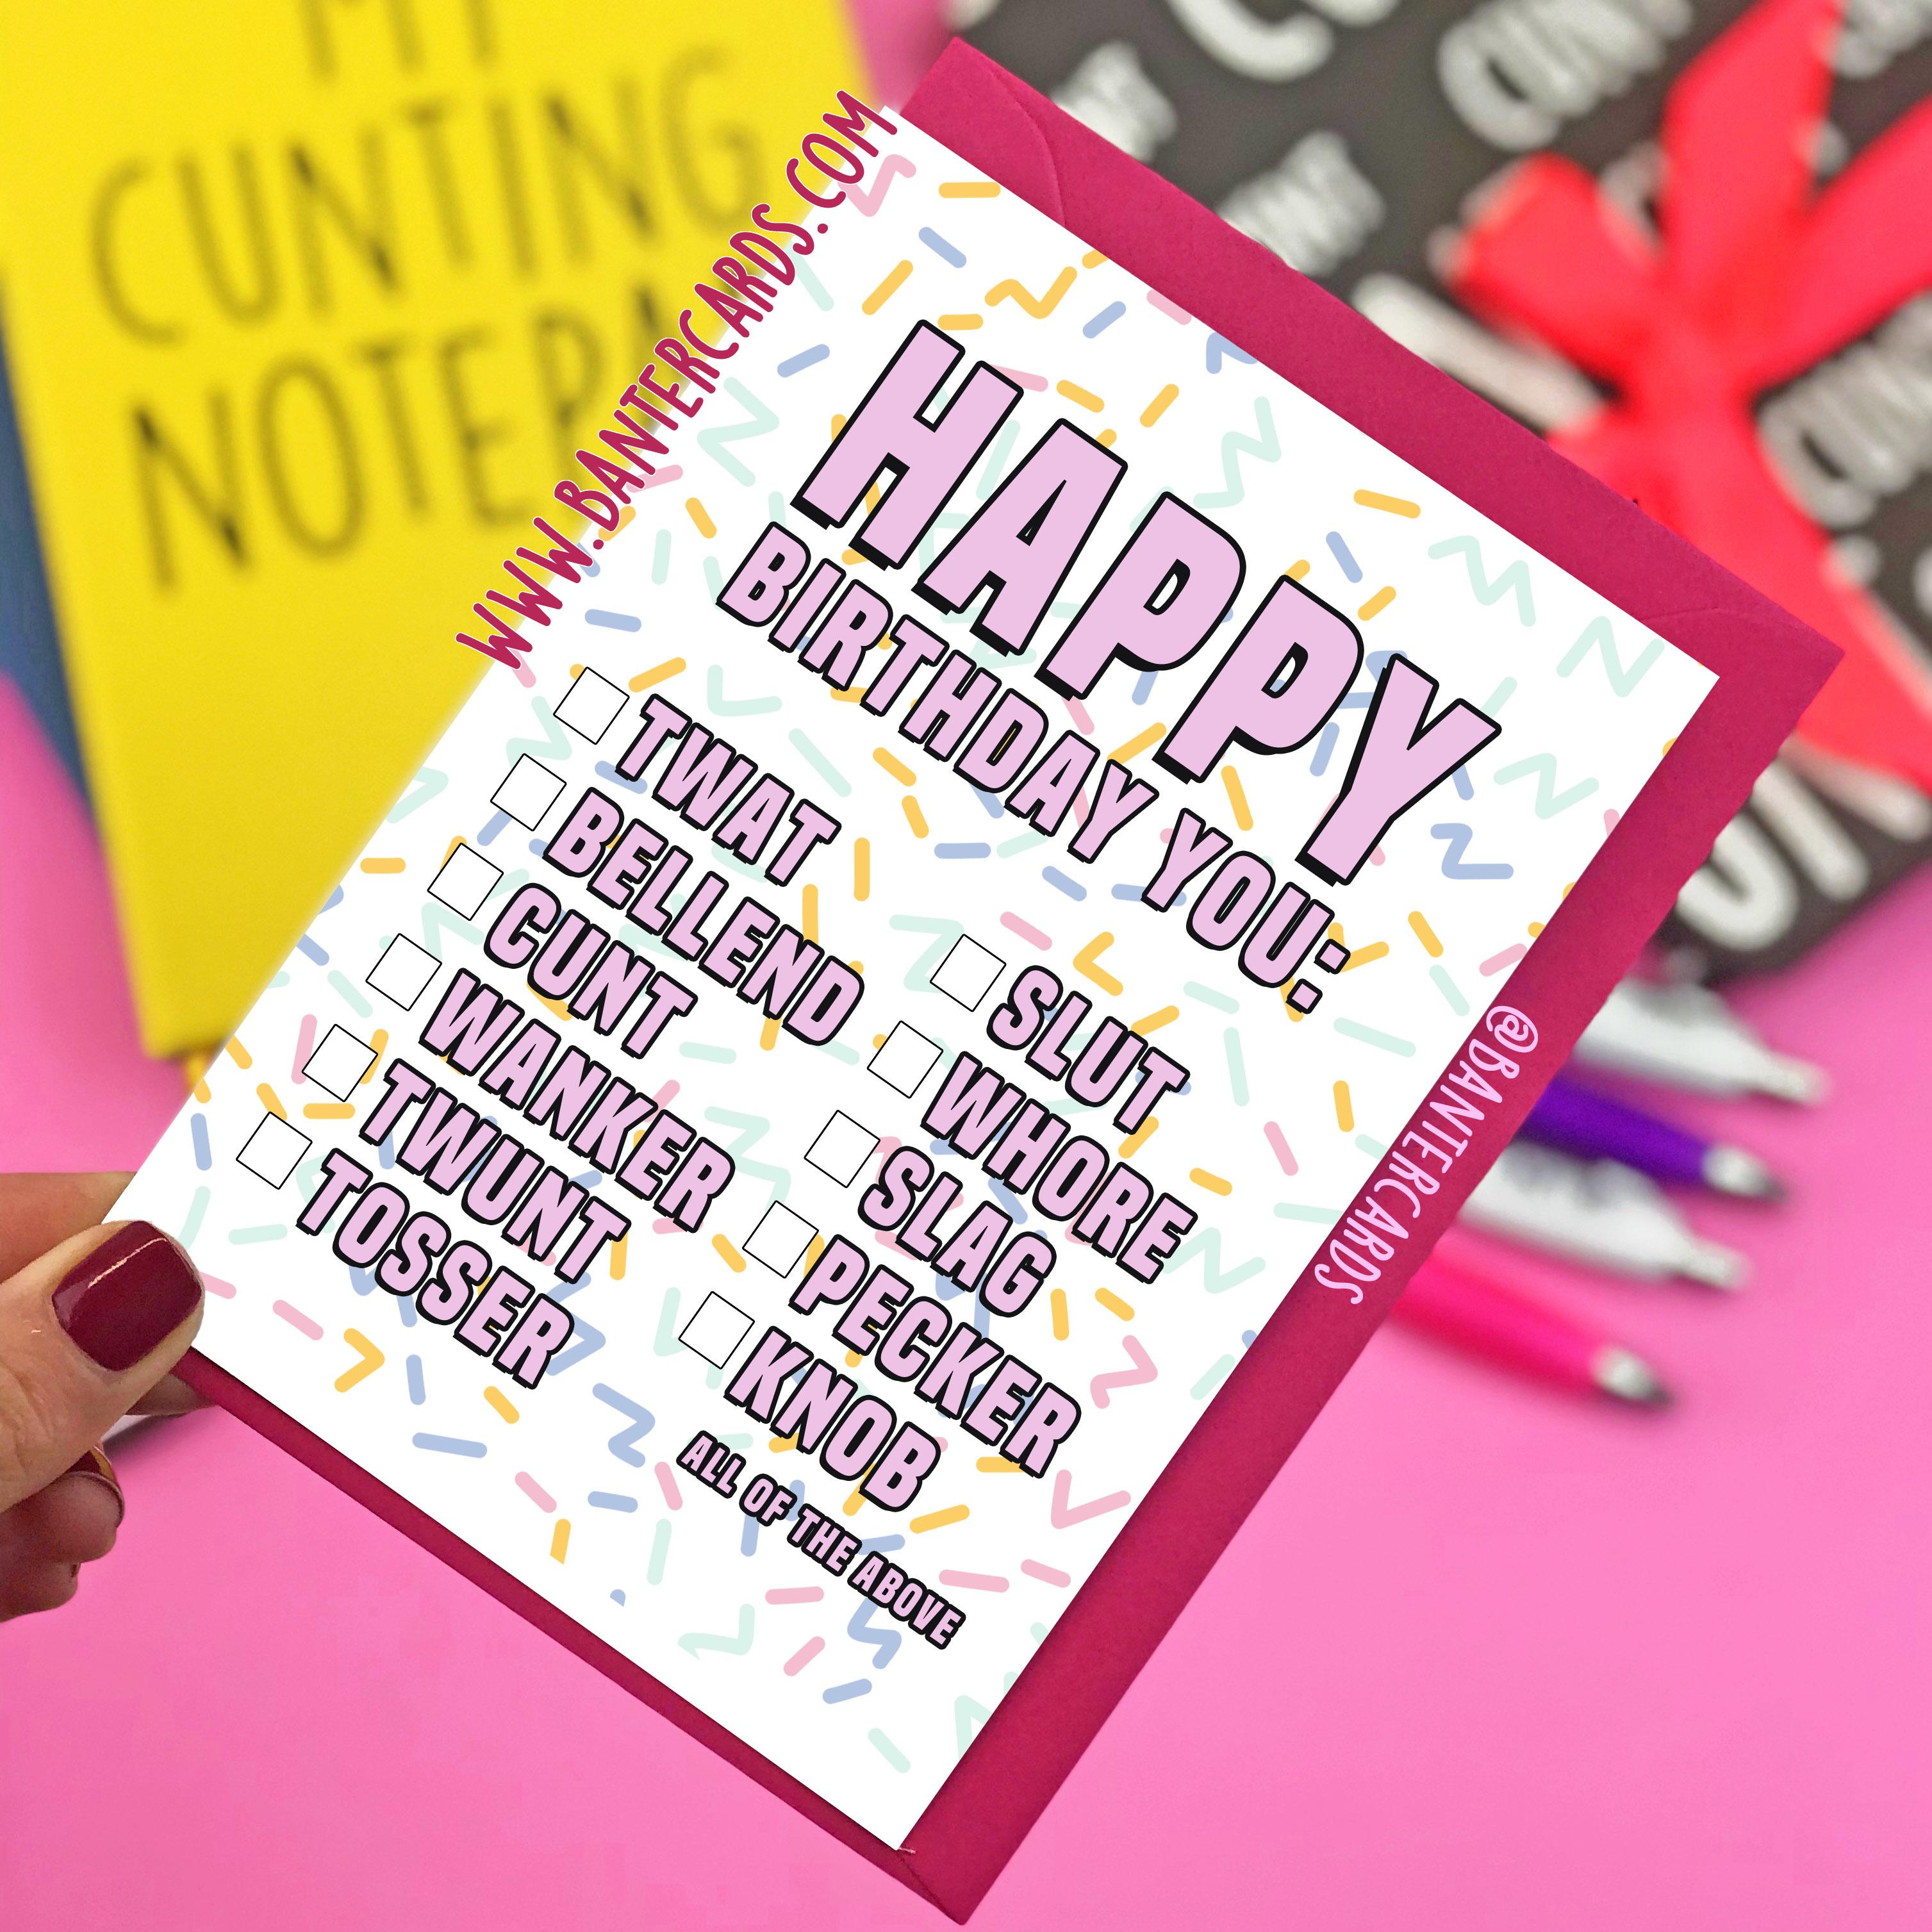 MY
CUNTING
NOTEPA
WWW.BANTERCARDS.COM
HAPPY
BIRTHDAY YOU:
TWAT
BELLEND
CUNT
WANKER
TWUNT
TOSSER
SLUT
WHORE
SLAG
PECKER
KNOB
ALL OF THE ABOVE
@BANTERCARDS